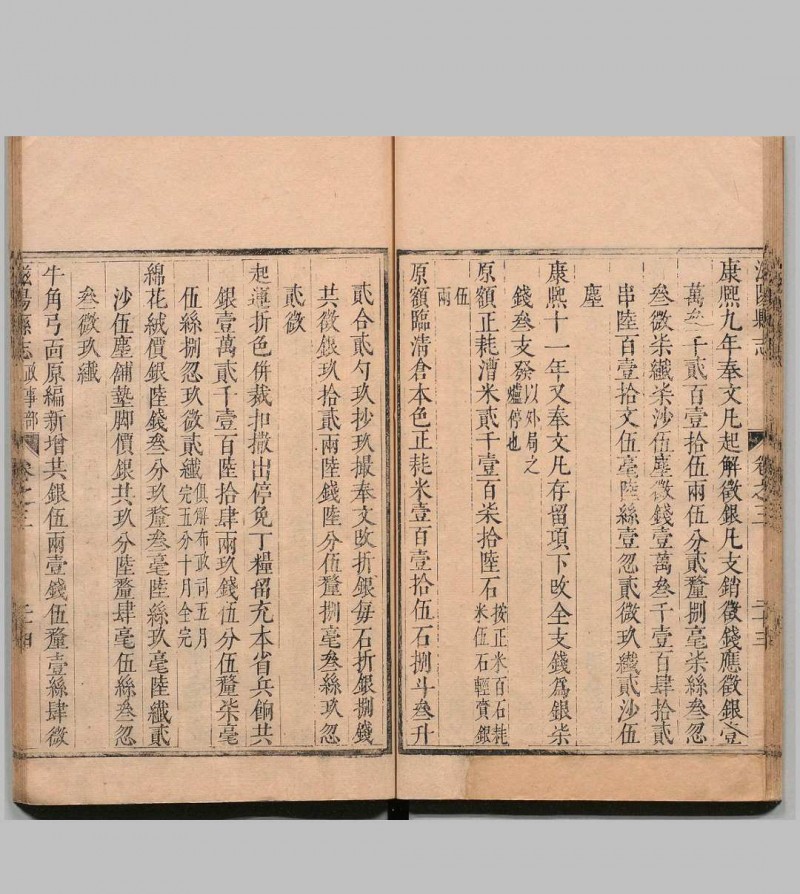 滋陽縣志
卷之三
二十三
康熙九年奉文凡起解徵銀凡支銷徵錢應徵銀壹
萬叁千貳百壹拾伍兩伍分貳釐捌毫柒絲叁忽
叁微柒纖柒沙伍塵徵錢壹萬叁千壹百肆拾貳
串陸百壹拾文伍毫陸絲壹忽貳微玖纖貳沙伍
塵
康熙十一年又奉文凡存留項下改全支錢爲銀柒
錢叁支發以外局之
爐停也
原額正耗漕米貳千壹百柒拾陸石按正米百石耗
米伍石輕賫銀
伍
兩
原額臨清倉本色正耗米壹百壹拾伍石捌斗叁升
貳合貳勺玖抄玖撮奉文改折銀每石折銀捌錢
共徵銀玖拾貳兩陸錢陸分伍釐捌毫叁絲玖忽
貳微
起運折色併裁扣撒出停免丁糧留充本省兵餉共
銀壹萬貳千壹百陸拾肆兩玖錢伍分伍釐柒毫
伍絲捌忽玖微貳纖俱解布政司五月
完五分十月全完
綿花絨價銀陸錢叁分玖釐叁毫陸絲玖毫陸纖貳
沙伍塵舖墊脚價銀共玖分陸釐肆毫伍絲叁忽
叁微玖纖
牛角弓面原編新增共銀伍兩壹錢伍釐壹絲肆微
滋陽縣志
政事部
卷之三
二十四